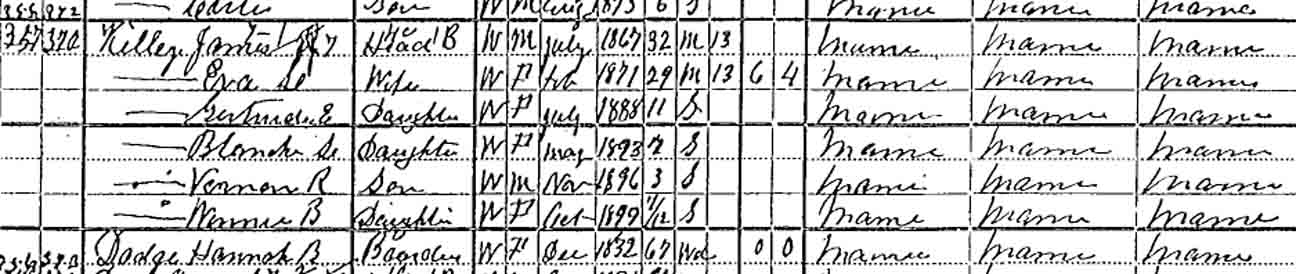 Son W M Aug 1873 6 S Maine Maine Maine
357 370 Kelley James Head B W M July 1867 32 M 13 Maine Maine Maine
— Eva Wife W F Feb 1871 29 M 13 6 4 Maine Maine Maine
— Gertrude E Daughter W F July 1888 11 S Maine Maine Maine
— Blanche Se Daughter W F May 1893 7 S Maine Maine Maine
— Vernon R Son W M Nov 1896 3 S Maine Maine Maine
— Winnie B Daughter W F Oct 1899 7/12 S Maine Maine Maine
Dodge Hannah B Boarder W F Dec 1832 67 Wd 0 0 Maine Maine Maine